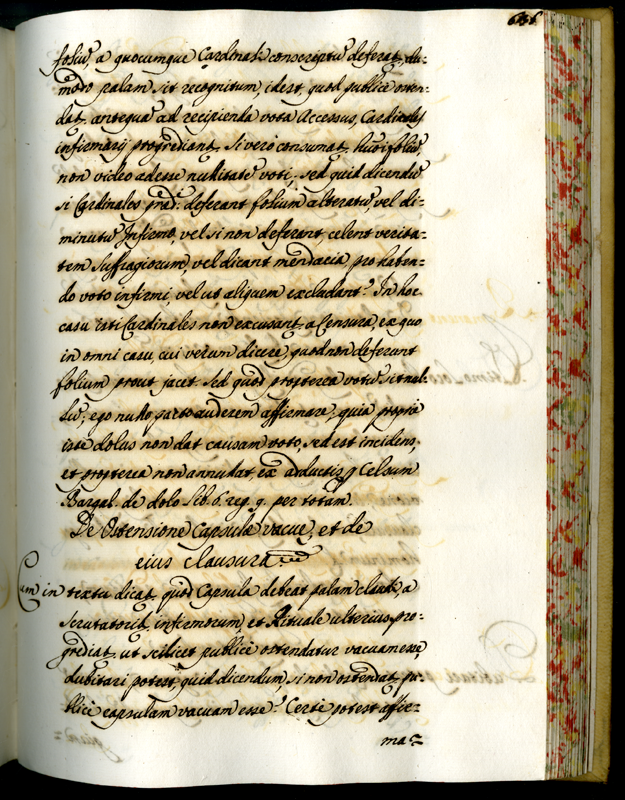 636
folium, a quocumque Cardinali conscriptũ deferat, du-
modo palam sit recognitum, idest, quod publice osten-
dat, antequã ad recipienda vota Accessus, Cardinales
infirmarij progrediant. Si vero consumat, huius foliũ
non video adesse nullitatẽ voti; sed quid dicendũ
si Cardinales præd: deferant folium alteratũ, vel di-
minutũ Infirmo, vel si non deferant, celent verita-
tem suffragiorum, vel dicant mendacia pro haben-
do voto infirmi, vel ut aliquem excludant? In hoc
casu isti Cardinales non excusant, a Censura, ex quo
in omni casu cui verum dicere, quod non deferunt
folium prout jacet. Sed quod propterea votũ sit nul-
lũ; ego nullo pacto auderem affirmare, quia proprie
iste dolus non dat causam voto, sed est incidens,
et propterea non annullat, ex adductis p Celsum
Bargal. de dolo lib. 6. reg. 9. per totam.
De Ostensione Capsulæ vacuæ, et de
eius clausura
Cum in textu dicat, quod Capsula debeat palam claudi, a
Scrutatorib. infirmorum, et Rituale ulterius pro-
grediat, ut scilicet publice ostendatur vacuam esse,
dubitari potest, quid dicendum, si non ostendat, pu-
blice capsulam vacuam esse? Certe potest affir-
ma-